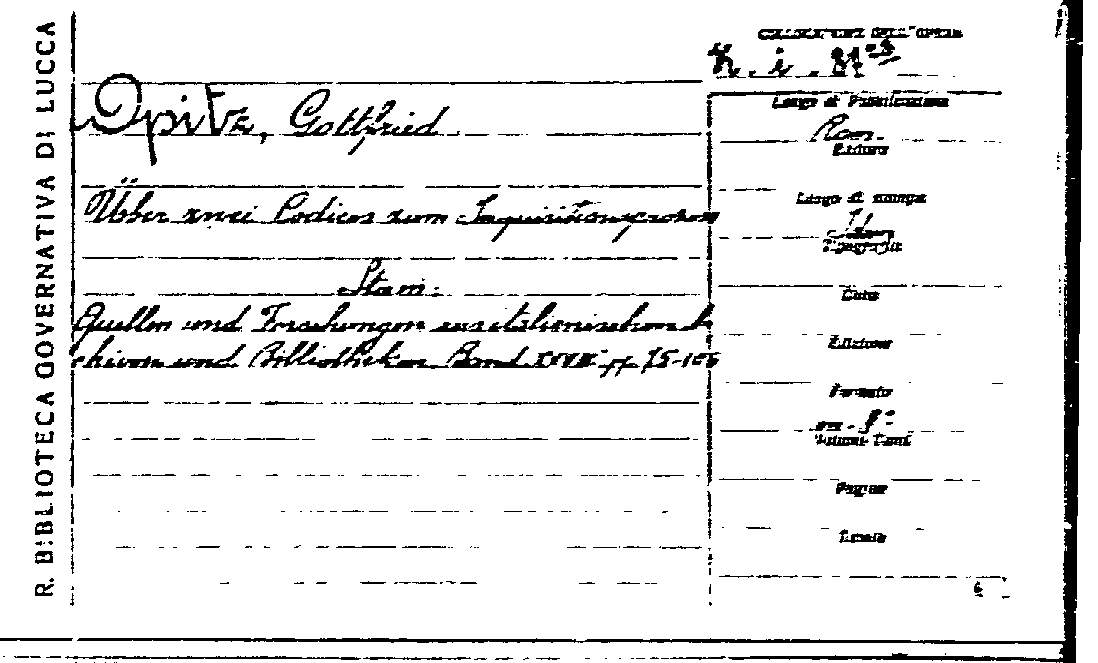 R. BIBLIOTECA GOVERNATIVA DI LUCCA
COLLOCAZIONE DELL'OPERA
Opitz, Gottfried
Über zwei Codices zum Inquisitionsprozess
Quellen und Forschungen aus italienischen Ar
chiven und Bibliotheken Band
Luogo di Pubblicazione
Rom.
Editore
Luogo di stampa
Tipografia
Data
Edizione
Formato
8°
Volumi-Tomi
Pagine